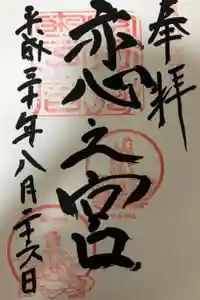 奉拝
恋之宮
平成三十年八月二十六日